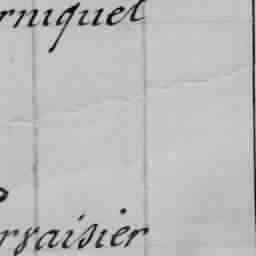 rniquet
rvaisier